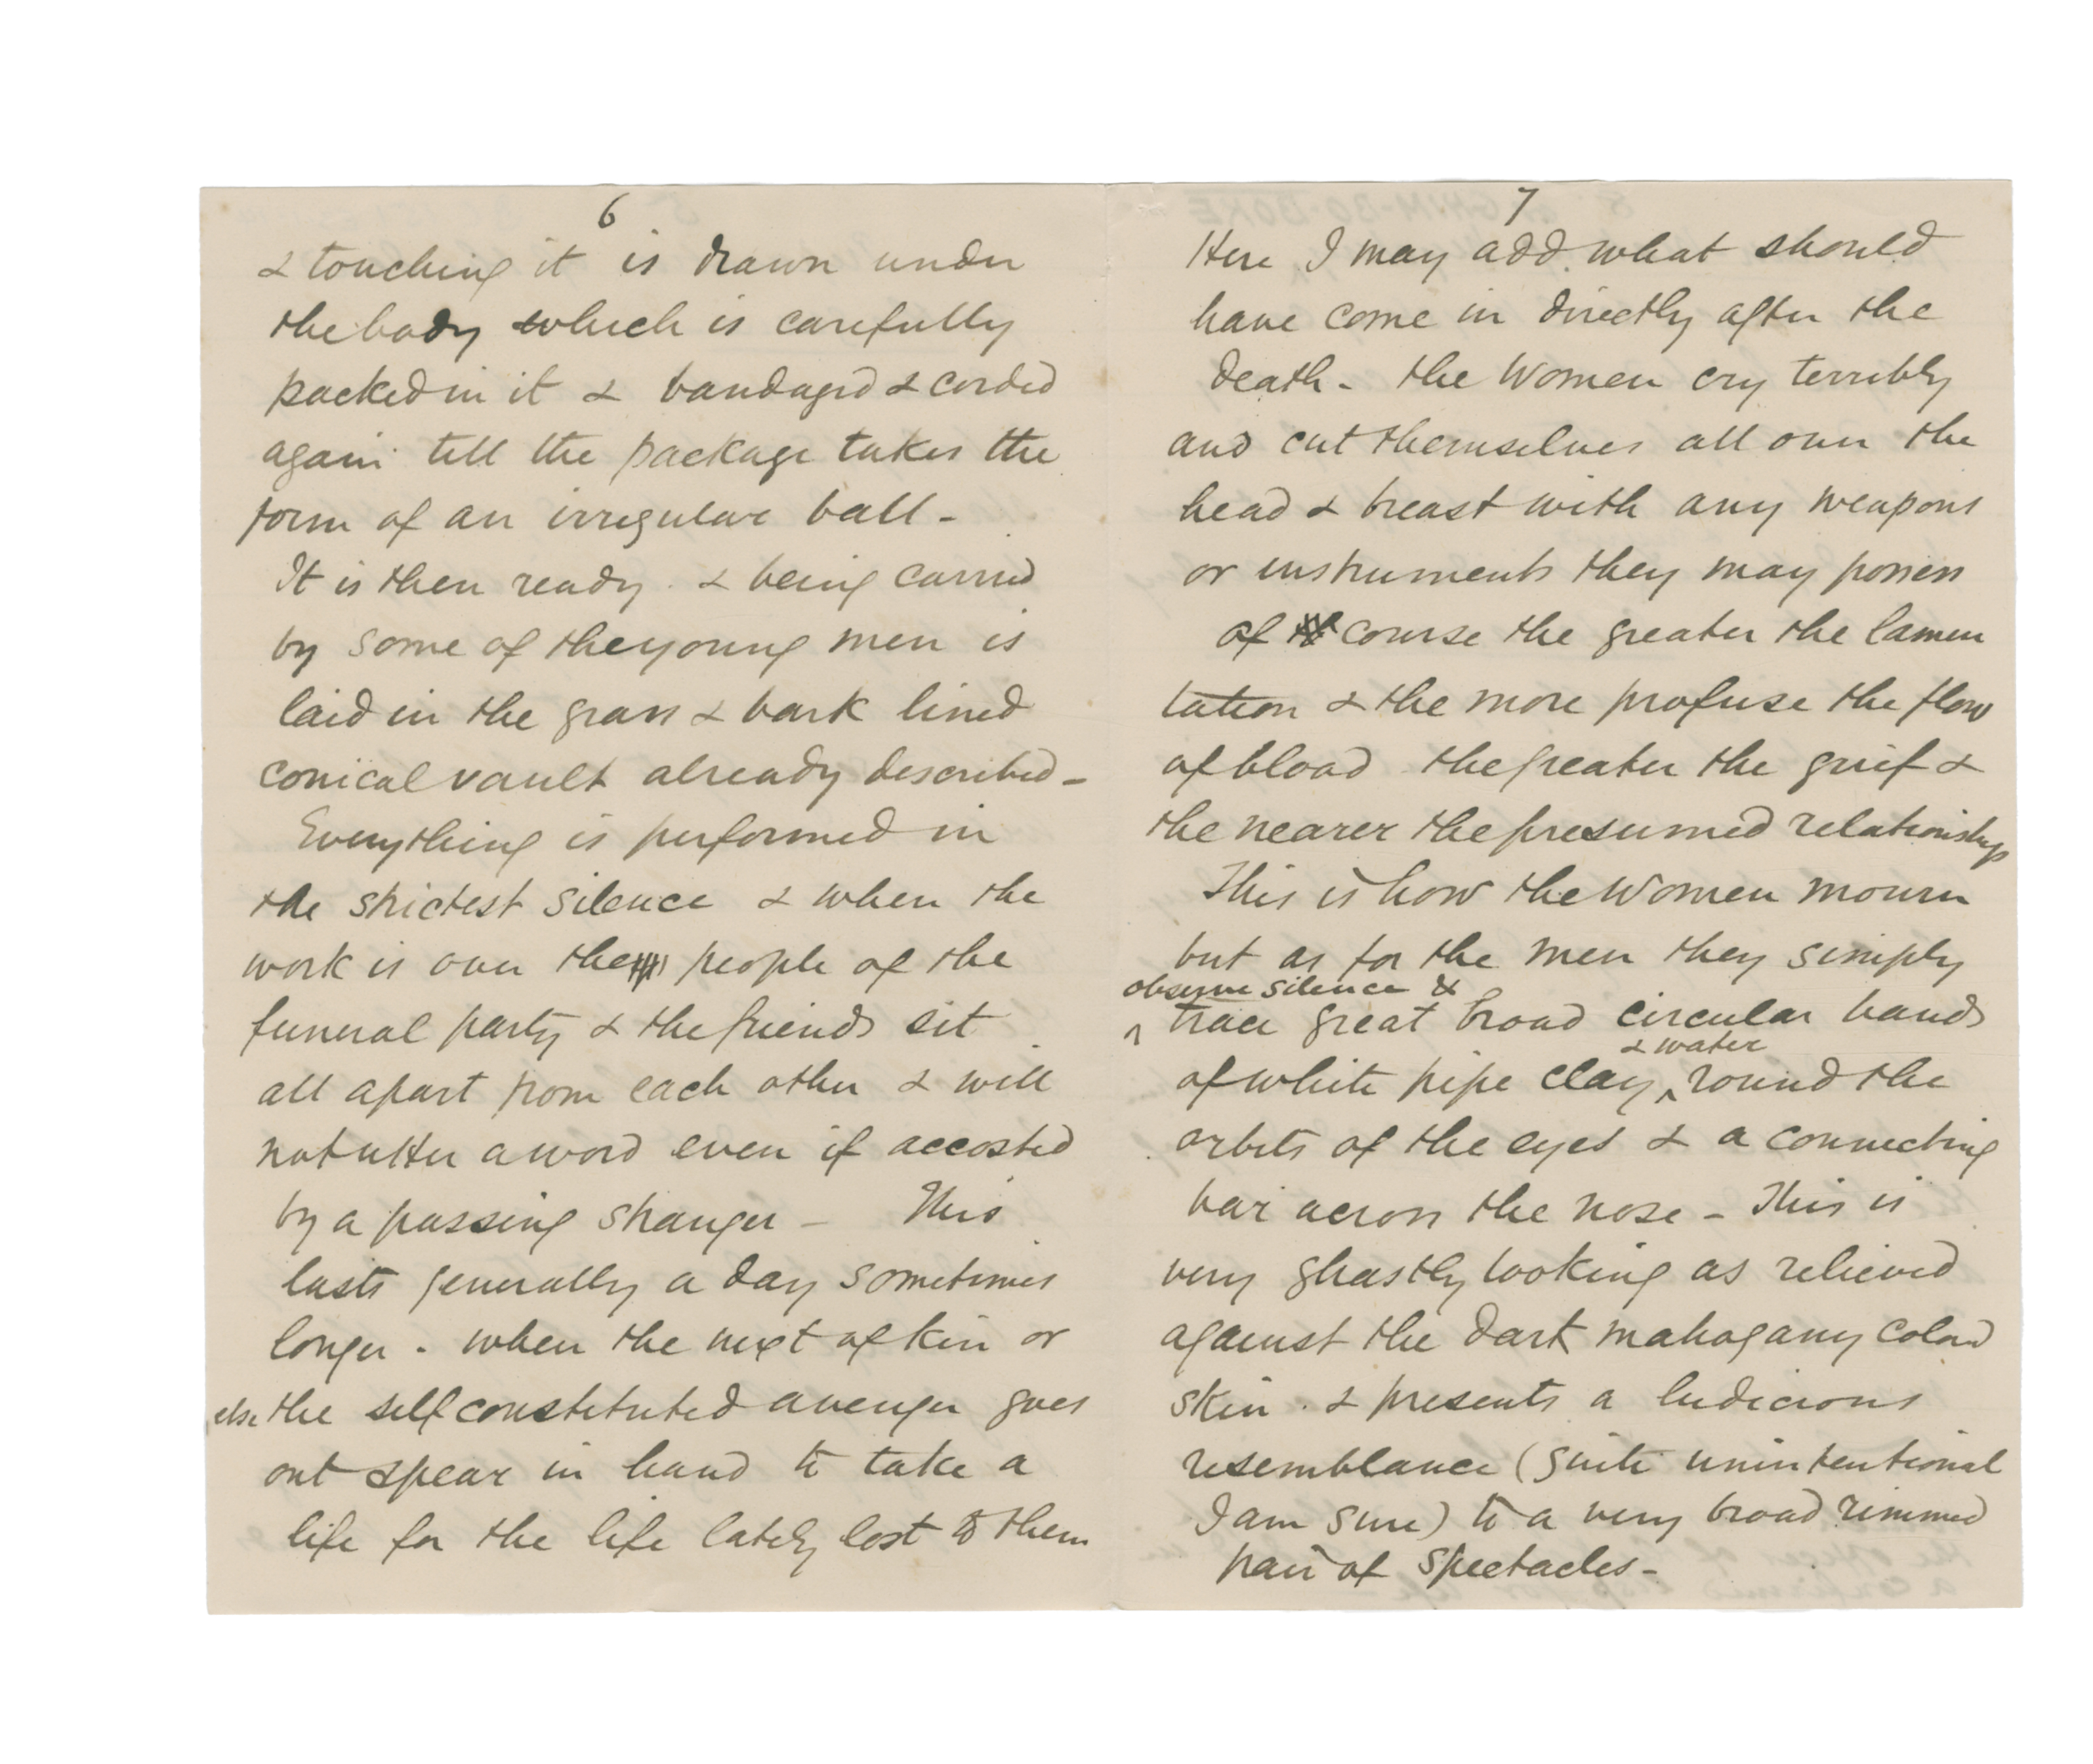 6
& touching it is drawn under
the body which is carefully
packed in it & bandaged & corded
again till the package takes the
form of an irregular ball -
It is then ready. & being carried
by some of the young men is
laid in the grass & bark lined
conical vault already described -
Everything is performed in
the strictest silence & when the
work is over the people of the
funeral party & the friends sit
all apart from each other & will
not utter a word even if accosted
by a passing stranger - This
lasts generally a day sometimes
longer - when the next of kin or
else the self constituted avenger goes
out spear in hand to take a
life for the life lately lost to them
7
Here I may add what should
have come in directly after the
death - the Women cry terribly
and cut themselves all over the
head & breast with any weapons
or instruments they may possess
of course the greater the lamen
tation & the more profuse the flow
of blood the greater the grief &
the nearer the presumed relationship
This is how the Women mourn
but as for the men they simply
observe silence &
trace great broad circular bands
& water
of white pipe clay round the
orbits of the eyes & a connecting
bar across the nose - This is
very ghastly looking as relieved
against the dark mahogany colord
skin. & presents a ludicrous
resemblance (quite unintentional
I am sure) to a very broad rimmed
pair of spectacles -